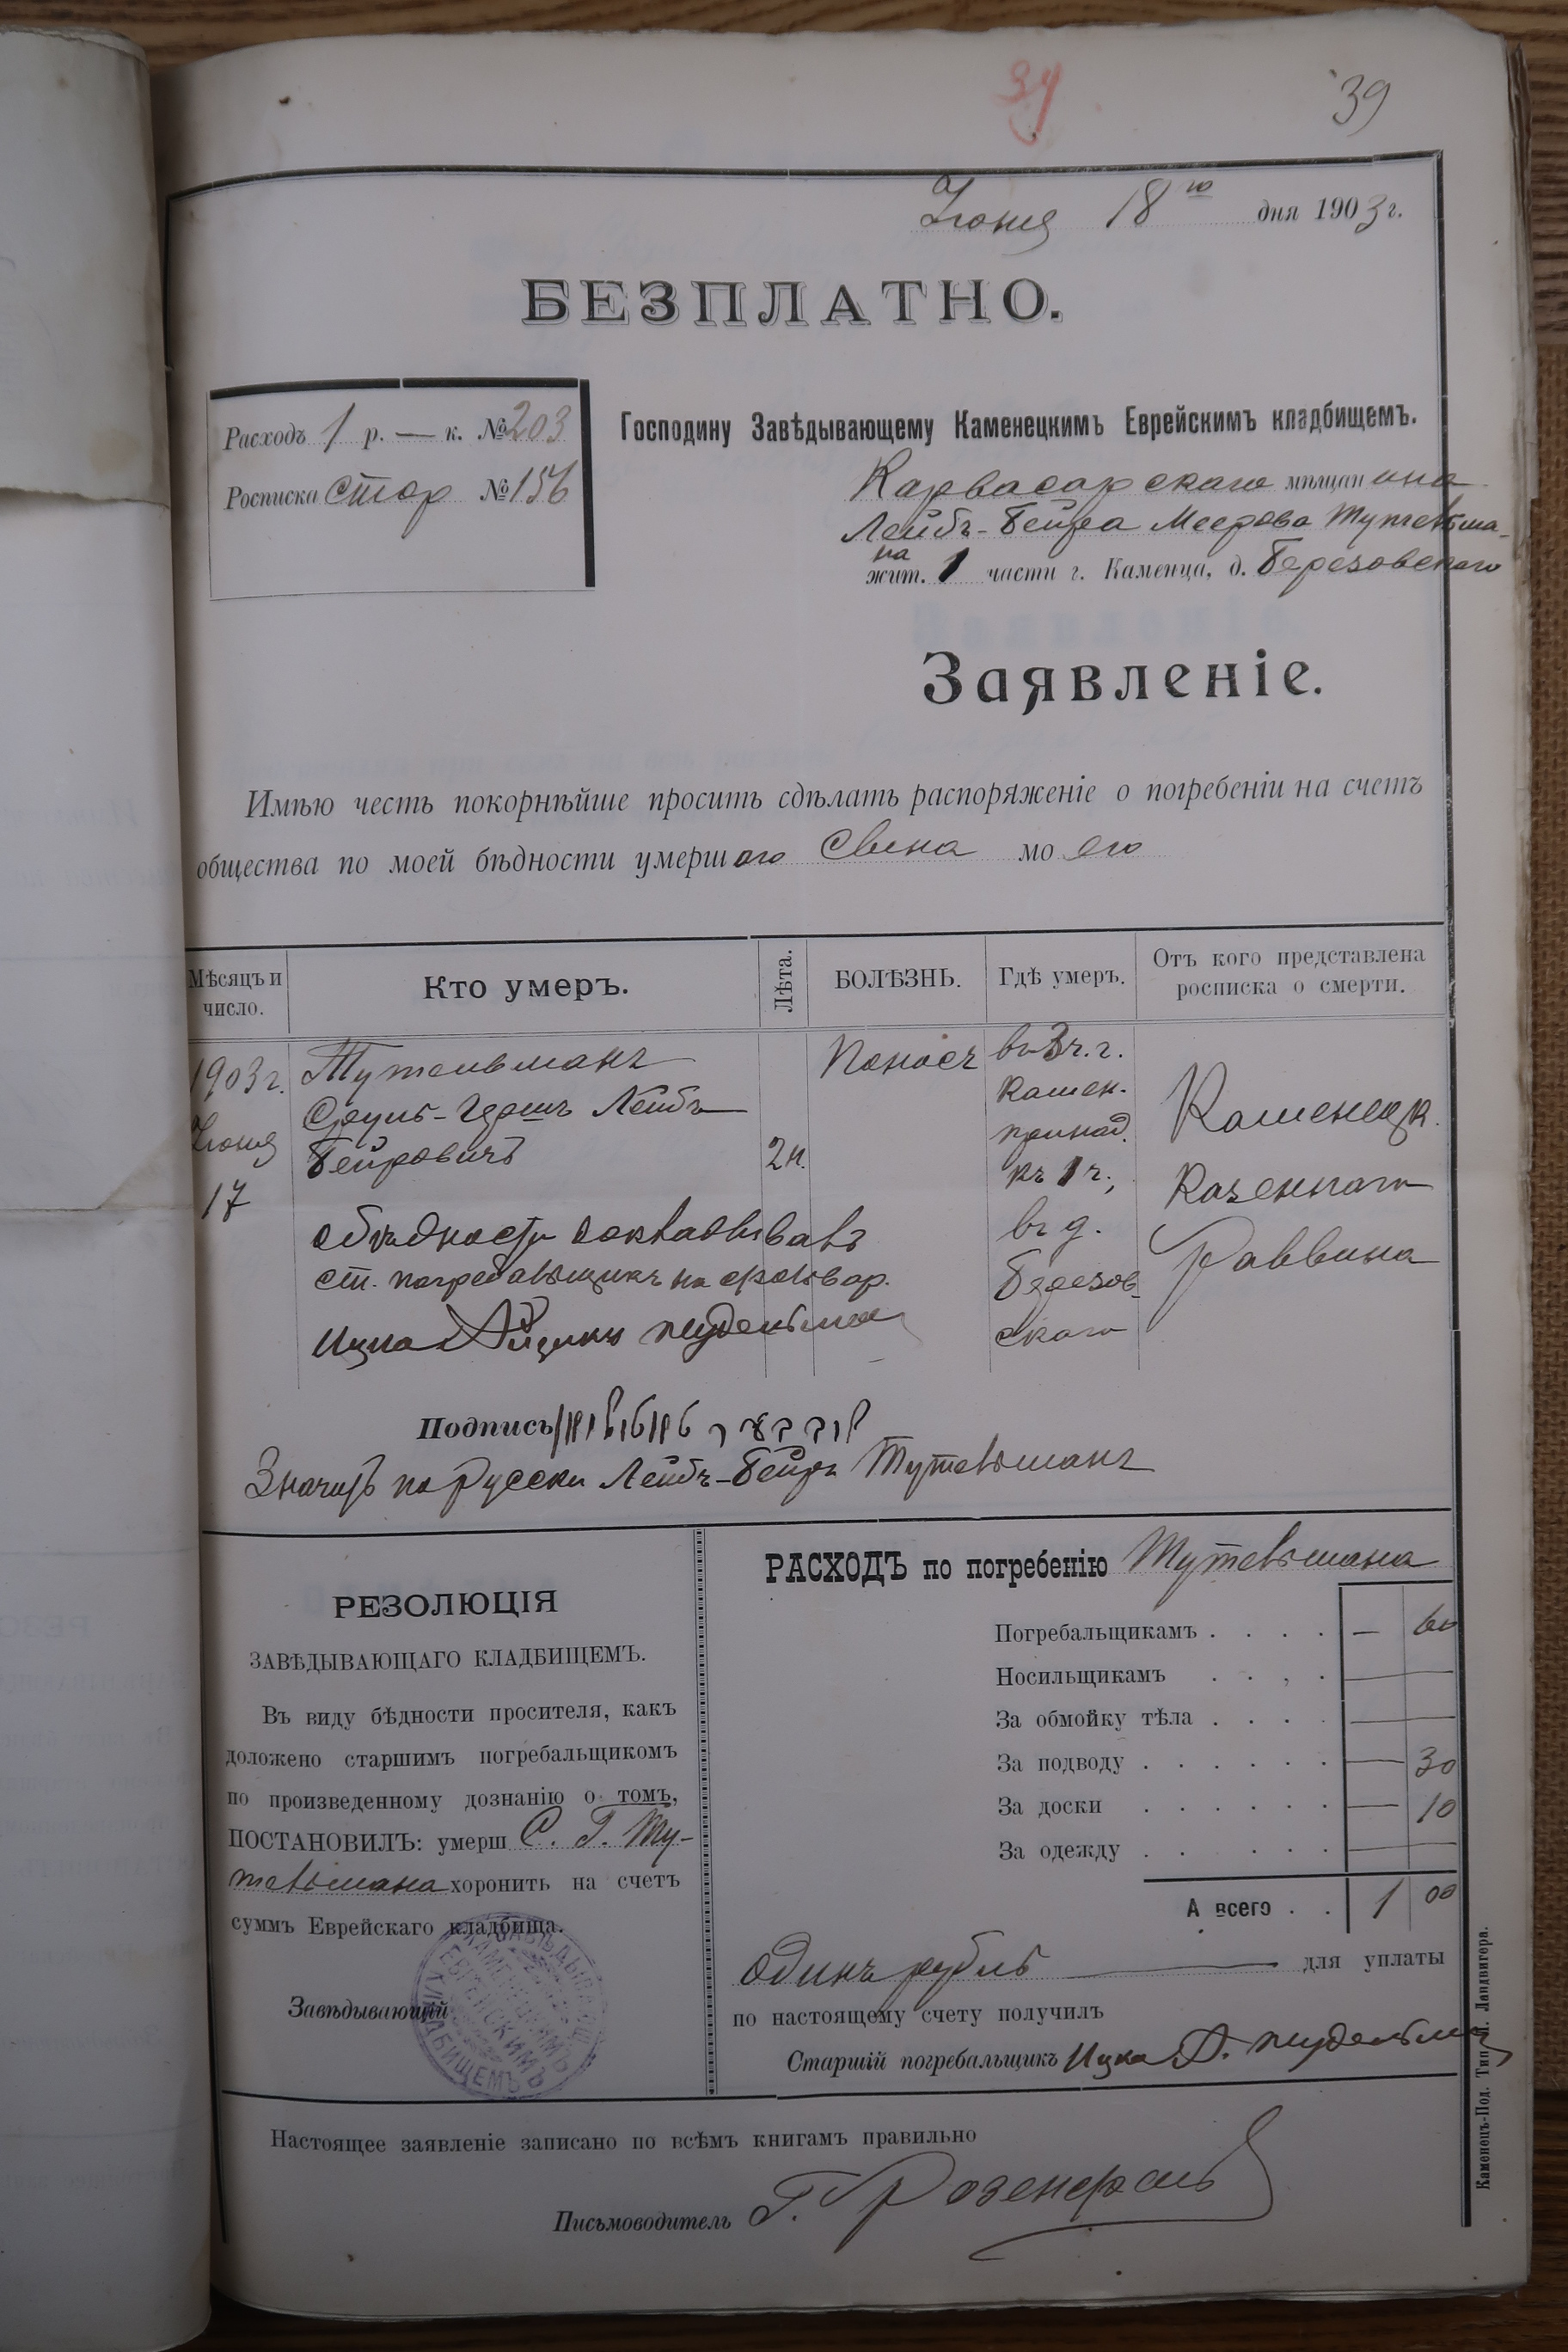 39
39
Іюня 18го дня 1903 г.
БЕЗПЛАТНО.
Расходъ 1 р. — к. № 203
Росписка стор № 156
Господину Завѣдывающему Каменецкимъ Еврейскимъ кладбищемъ.
Карвасарскаго мѣщанина
Лейбъ-Бейра Меерова Тутельма-
на
жит. 1 части г. Каменца, д. Березовскаго
Заявленіе.
Имѣю честь покорнѣйше просить сдѣлать распоряженіе о погребеніи на счетъ
общества по моей бѣдности умершаго сына моего
Мѣсяцъ и число.
Кто умеръ.
Лѣта.
БОЛѢЗНЬ.
Гдѣ умеръ.
Отъ кого представлена росписка о смерти.
1903 г.
Іюня
17
Тутельманъ
Сруль-Гершъ Лейбъ
Бейровичъ
2 н.
Поносъ
въ 3 ч. г.
Камен.
принад.
къ 1 ч.,
въ д.
Березов-
скаго
Каменецк.
Казеннаго
Раввина
о бѣдности
ст. погребальщикъ на
Ицко
Подпись
Значитъ по Русски Лейбъ-Бейръ Тутельманъ
РЕЗОЛЮЦІЯ
ЗАВѢДЫВАЮЩАГО КЛАДБИЩЕМЪ.
Въ виду бѣдности просителя, какъ
доложено старшимъ погребальщикомъ
по произведенному дознанію о томъ,
ПОСТАНОВИЛЪ: умерш С. Г. Ту-
тельмана хоронить на счетъ
суммъ Еврейскаго кладбища.
Завѣдывающій
ЗАВѢДЫВАЮЩ. КАМЕНЕЦКИМЪ ЕВРЕЙСКИМЪ КЛАДБИЩЕМЪ
РАСХОДЪ по погребенію Тутельмана
Погребальщикамъ . . . . — 60
Носильщикамъ . . . .
За обмойку тѣла . . . .
За подводу . . . . . . — 30
За доски . . . . . . — 10
За одежду . . . . . .
А всего . . 1 00
одинъ рубль — для уплаты
по настоящему счету получилъ
Старшій погребальщикъ Ицко
Настоящее заявленіе записано по всѣмъ книгамъ правильно
Письмоводитель Г. Розенфель
Каменецъ-Под. Тип. Ландвигера.